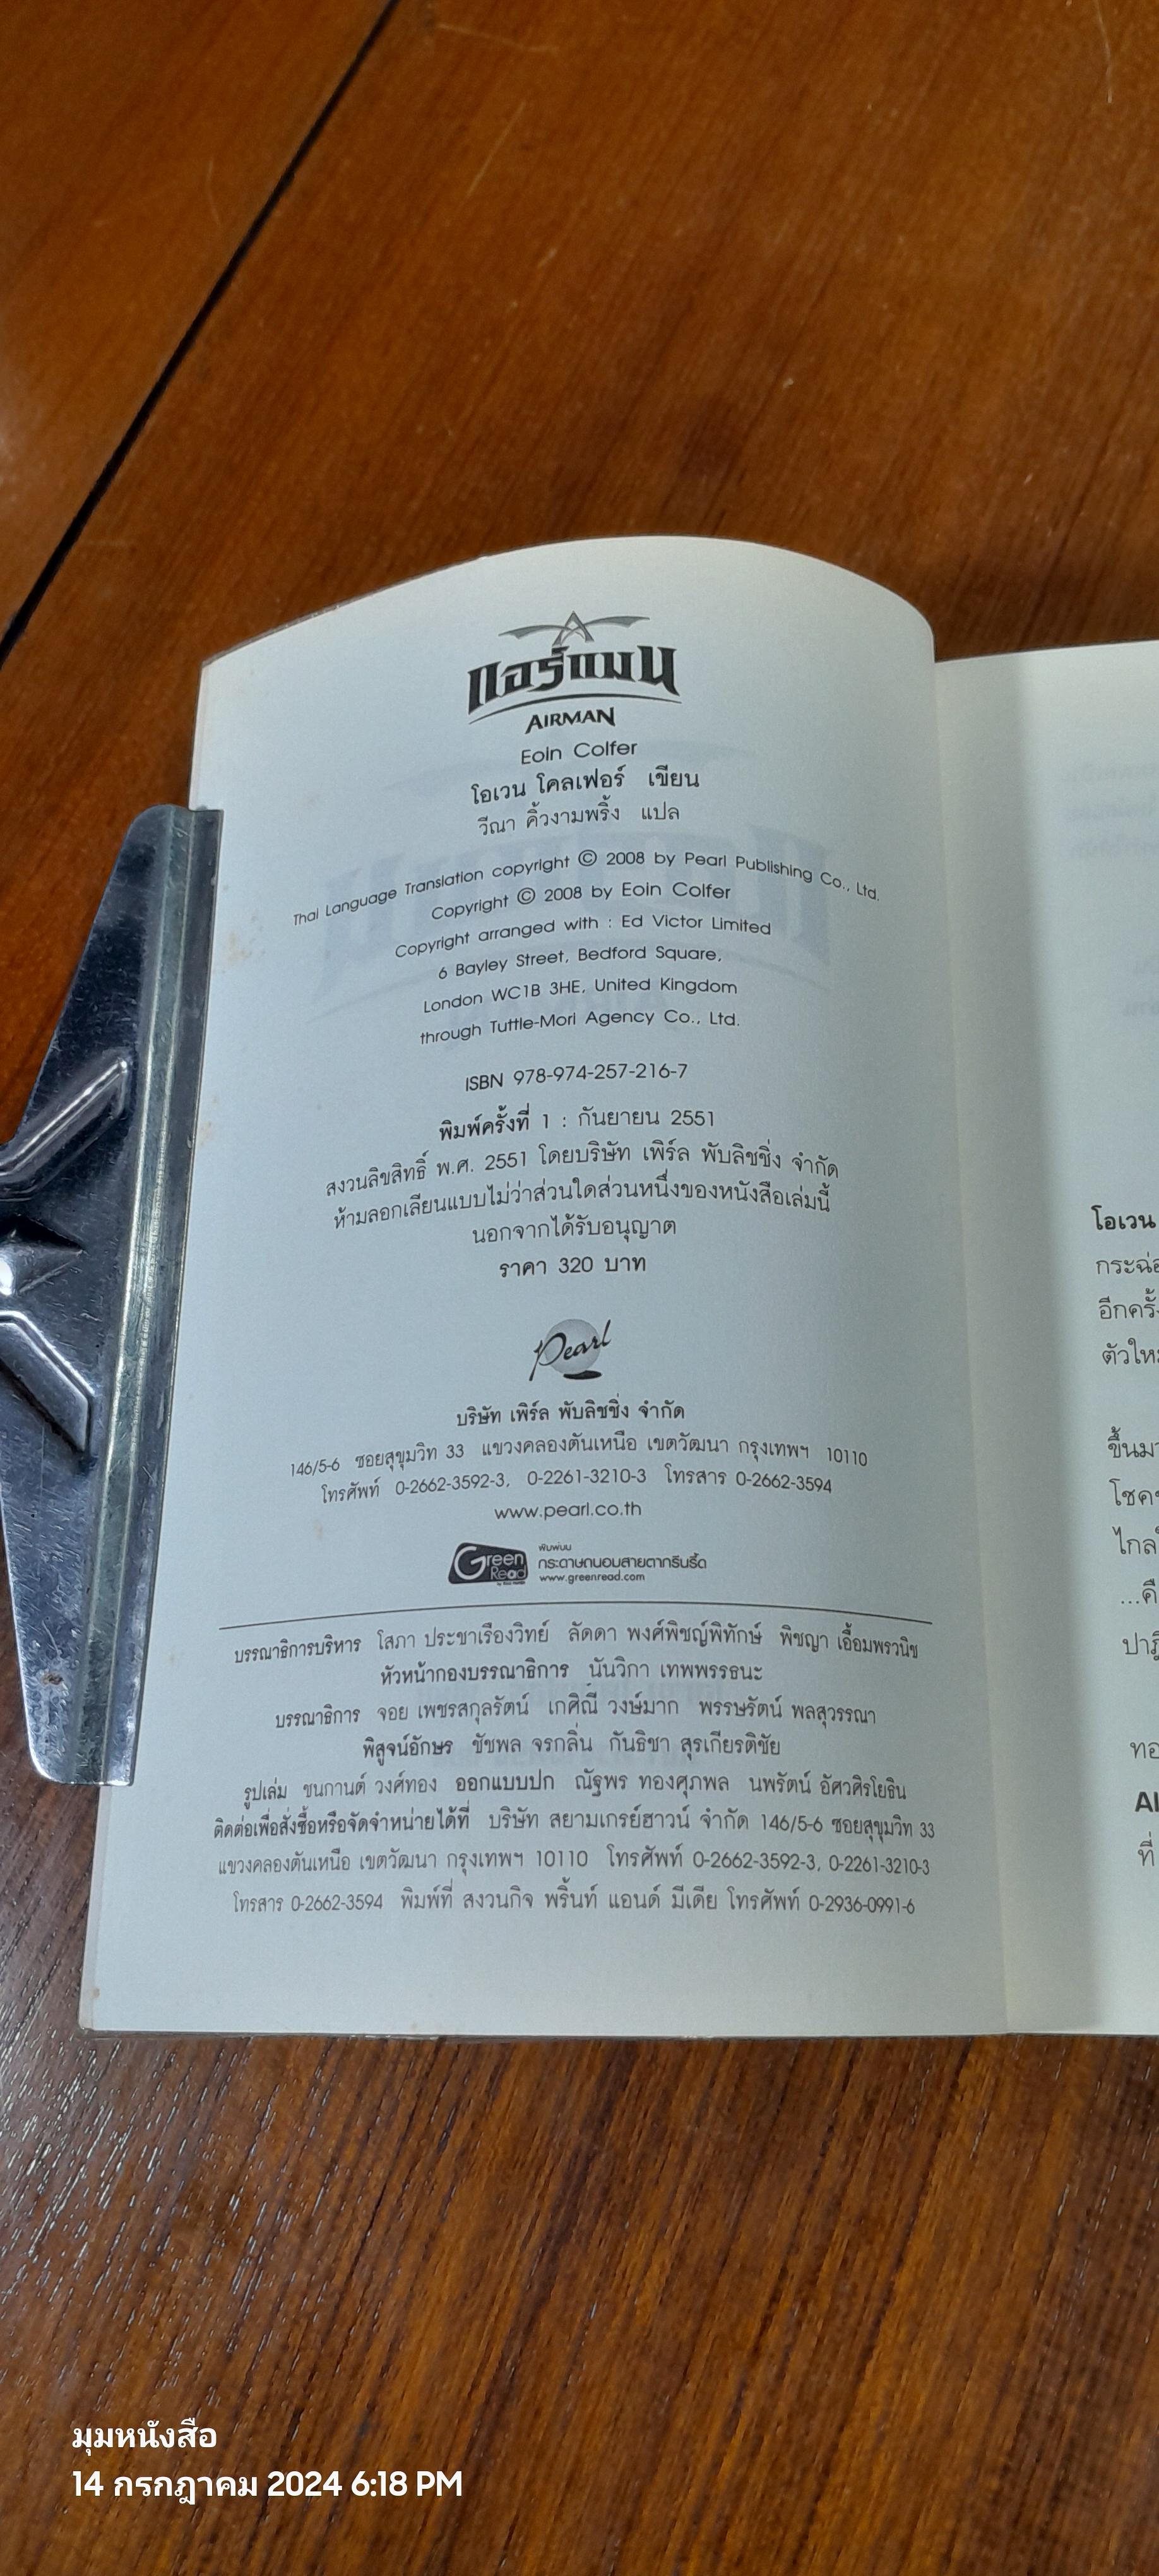 แอร์แมน
AIRMAN
Eoin Colfer
โอเวน โคลเฟอร์ เขียน
วีณา คิ้วงามพริ้ง แปล
Thai Language Translation copyright © 2008 by Pearl Publishing Co., Ltd.
Copyright © 2008 by Eoin Colfer
Copyright arranged with : Ed Victor Limited
6 Bayley Street, Bedford Square,
London WC1B 3HE, United Kingdom
through Tuttle-Mori Agency Co., Ltd.
ISBN 978-974-257-216-7
พิมพ์ครั้งที่ 1 : กันยายน 2551
สงวนลิขสิทธิ์ พ.ศ. 2551 โดยบริษัท เพิร์ล พับลิชชิ่ง จำกัด
ห้ามลอกเลียนแบบไม่ว่าส่วนใดส่วนหนึ่งของหนังสือเล่มนี้
นอกจากได้รับอนุญาต
ราคา 320 บาท
Pearl
บริษัท เพิร์ล พับลิชชิ่ง จำกัด
146/5-6 ซอยสุขุมวิท 33 แขวงคลองตันเหนือ เขตวัฒนา กรุงเทพฯ 10110
โทรศัพท์ 0-2662-3592-3, 0-2261-3210-3 โทรสาร 0-2662-3594
www.pearl.co.th
Green Read
พิมพ์บน
กระดาษถนอมสายตากรีนรี้ด
www.greenread.com
บรรณาธิการบริหาร โสภา ประชาเรืองวิทย์ ลัดดา พงศ์พิชญ์พิทักษ์ พิชญา เอื้อมพรวนิช
หัวหน้ากองบรรณาธิการ นันวิกา เทพพรรธนะ
บรรณาธิการ จอย เพชรสกุลรัตน์ เกศิณี วงษ์มาก พรรษรัตน์ พลสุวรรณา
พิสูจน์อักษร ชัชพล จรกลิ่น กันธิชา สุรเกียรติชัย
รูปเล่ม ชนกานต์ วงศ์ทอง ออกแบบปก ณัฐพร ทองศุภพล นพรัตน์ อัศวศิรโยธิน
ติดต่อเพื่อสั่งซื้อหรือจัดจำหน่ายได้ที่ บริษัท สยามเกรย์ฮาวน์ จำกัด 146/5-6 ซอยสุขุมวิท 33
แขวงคลองตันเหนือ เขตวัฒนา กรุงเทพฯ 10110 โทรศัพท์ 0-2662-3592-3, 0-2261-3210-3
โทรสาร 0-2662-3594 พิมพ์ที่ สงวนกิจ พริ้นท์ แอนด์ มีเดีย โทรศัพท์ 0-2936-0991-6
โอเวน
อีกครั้ง
ที่
มุมหนังสือ
14 กรกฎาคม 2024 6:18 PM